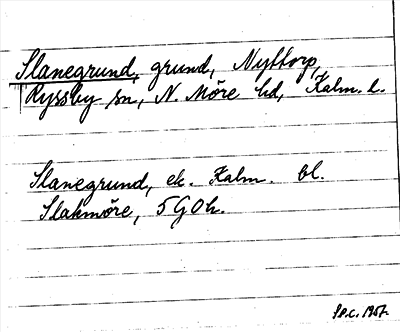 Slanegrund, grund, Nyttorp,
Ryssby sn, N. Möre hd, Kalm. l.
Slanegrund, ek. Kalm. bl.
Slakmöre, 5G0h.
1957